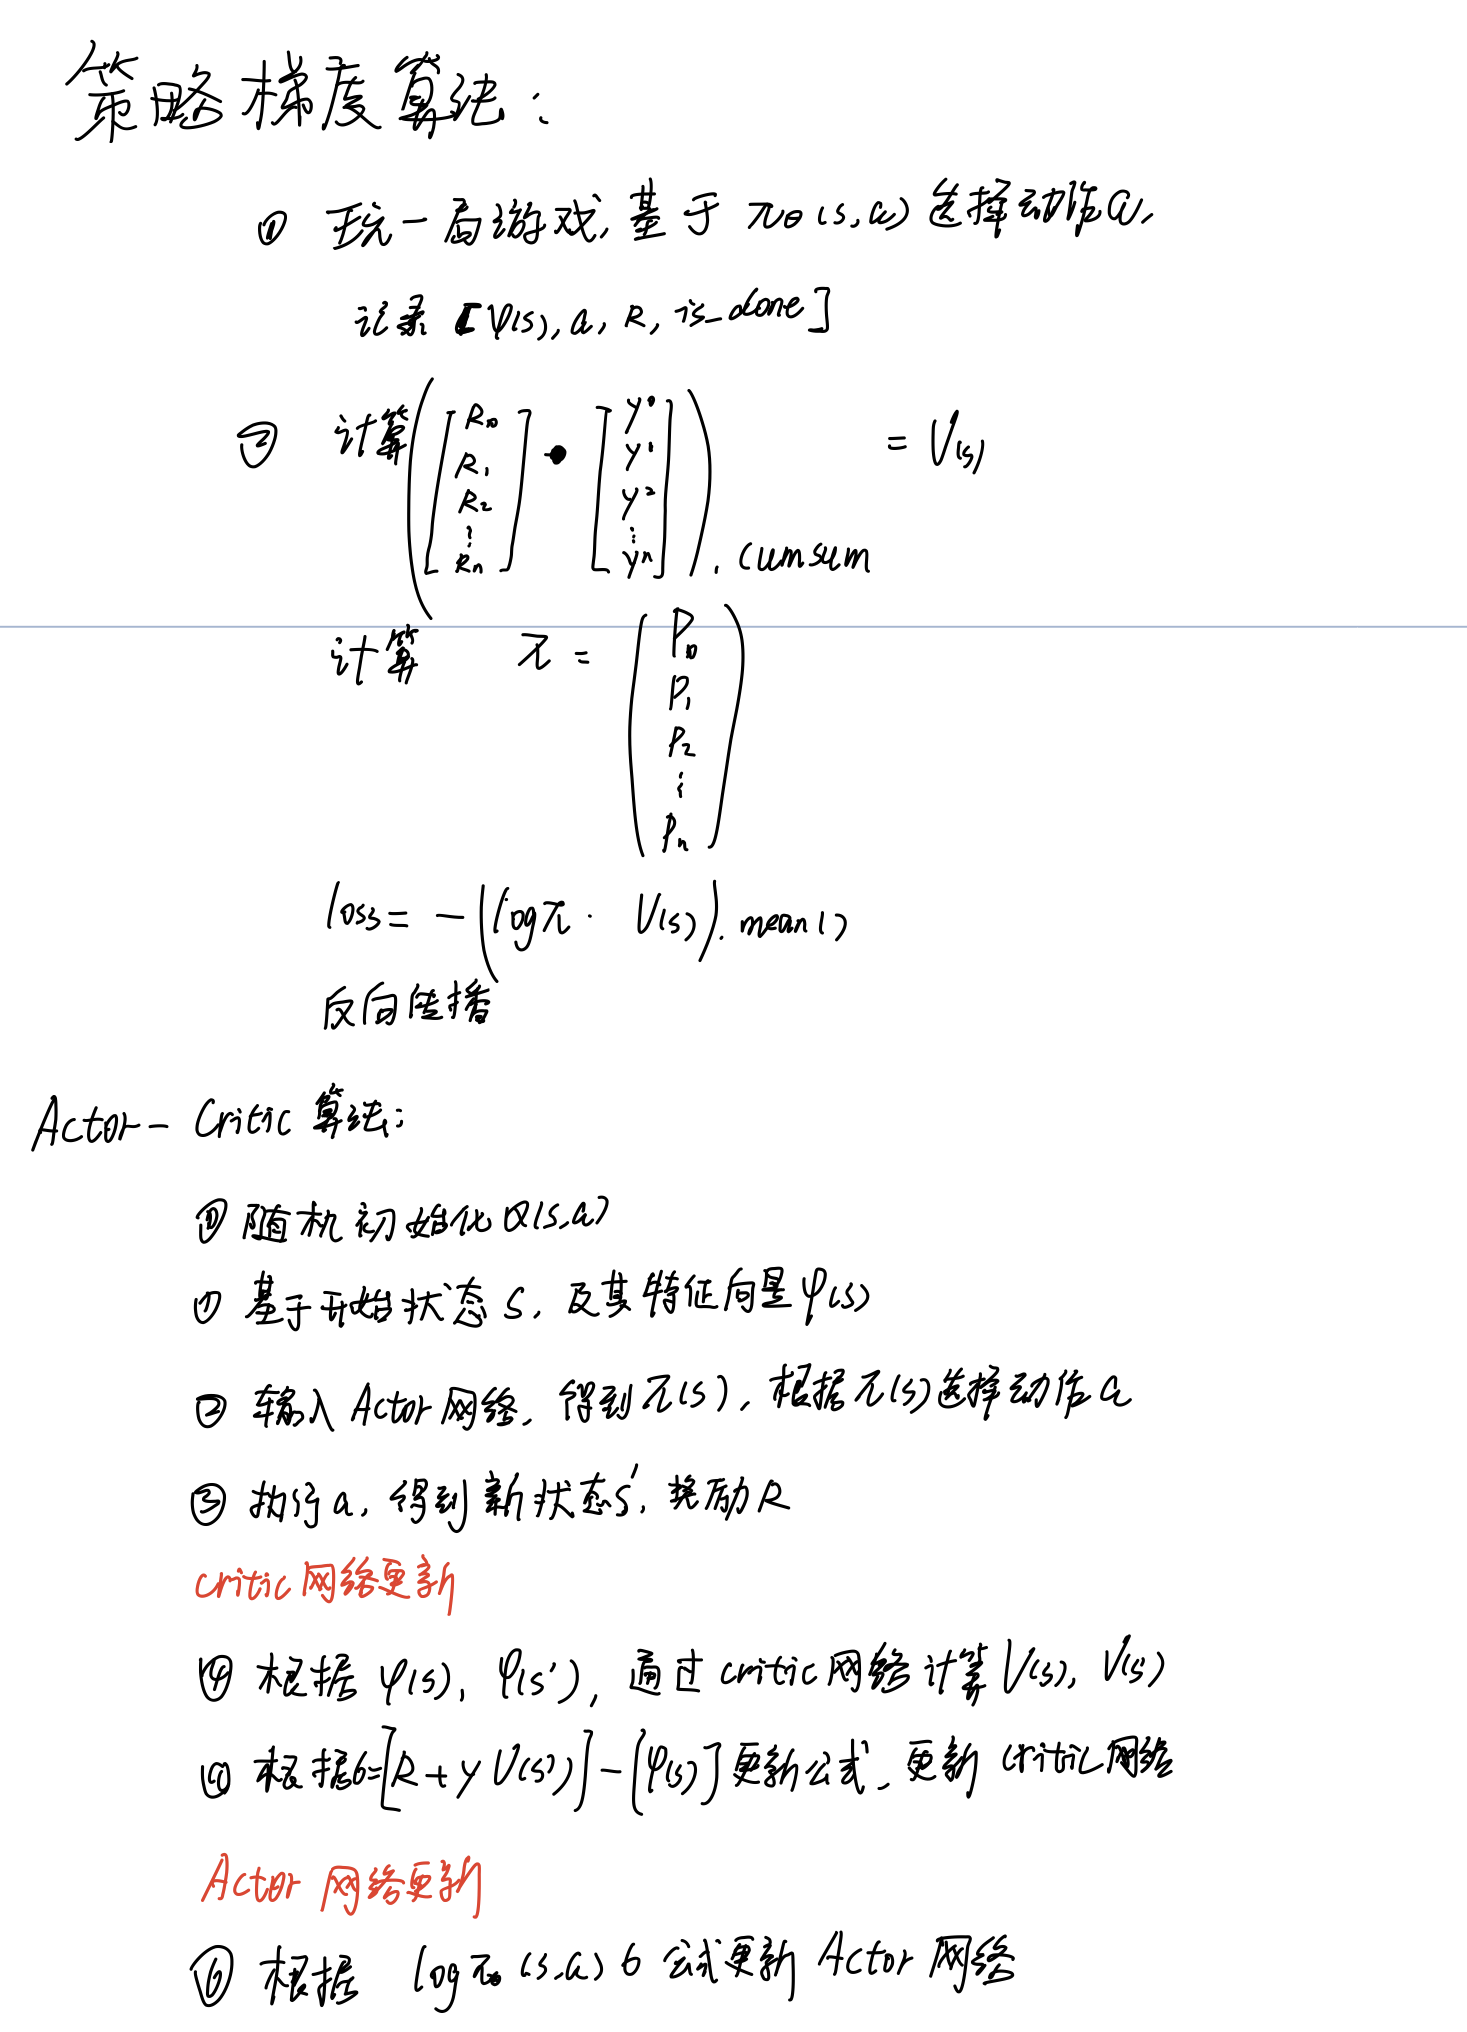 策略梯度算法:
① 玩一局游戏, 基于 πθ(s,a) 选择动作a,
记录 [φ(s), a, R, is_done]
② 计算([R0 R1 R2 ⋮ Rn] • [γ^0 γ^1 γ^2 ⋮ γ^n]).cumsum = V(s)
计算 π = (P0 P1 P2 ⋮ Pn)
loss = -(logπ · V(s)).mean()
反向传播
Actor-Critic 算法:
⓪ 随机初始化 Q(s,a)
① 基于开始状态 S, 及其特征向量 φ(s)
② 输入 Actor 网络, 得到 π(s), 根据 π(s) 选择动作 a
③ 执行 a, 得到新状态 s', 奖励 R
critic 网络更新
④ 根据 φ(s), φ(s'), 通过 critic 网络计算 V(s), V(s')
④ 根据 δ=[R+γV(s')]-[φ(s)] 更新公式, 更新 critic 网络
Actor 网络更新
⑥ 根据 logπθ(s,a) δ 公式更新 Actor 网络